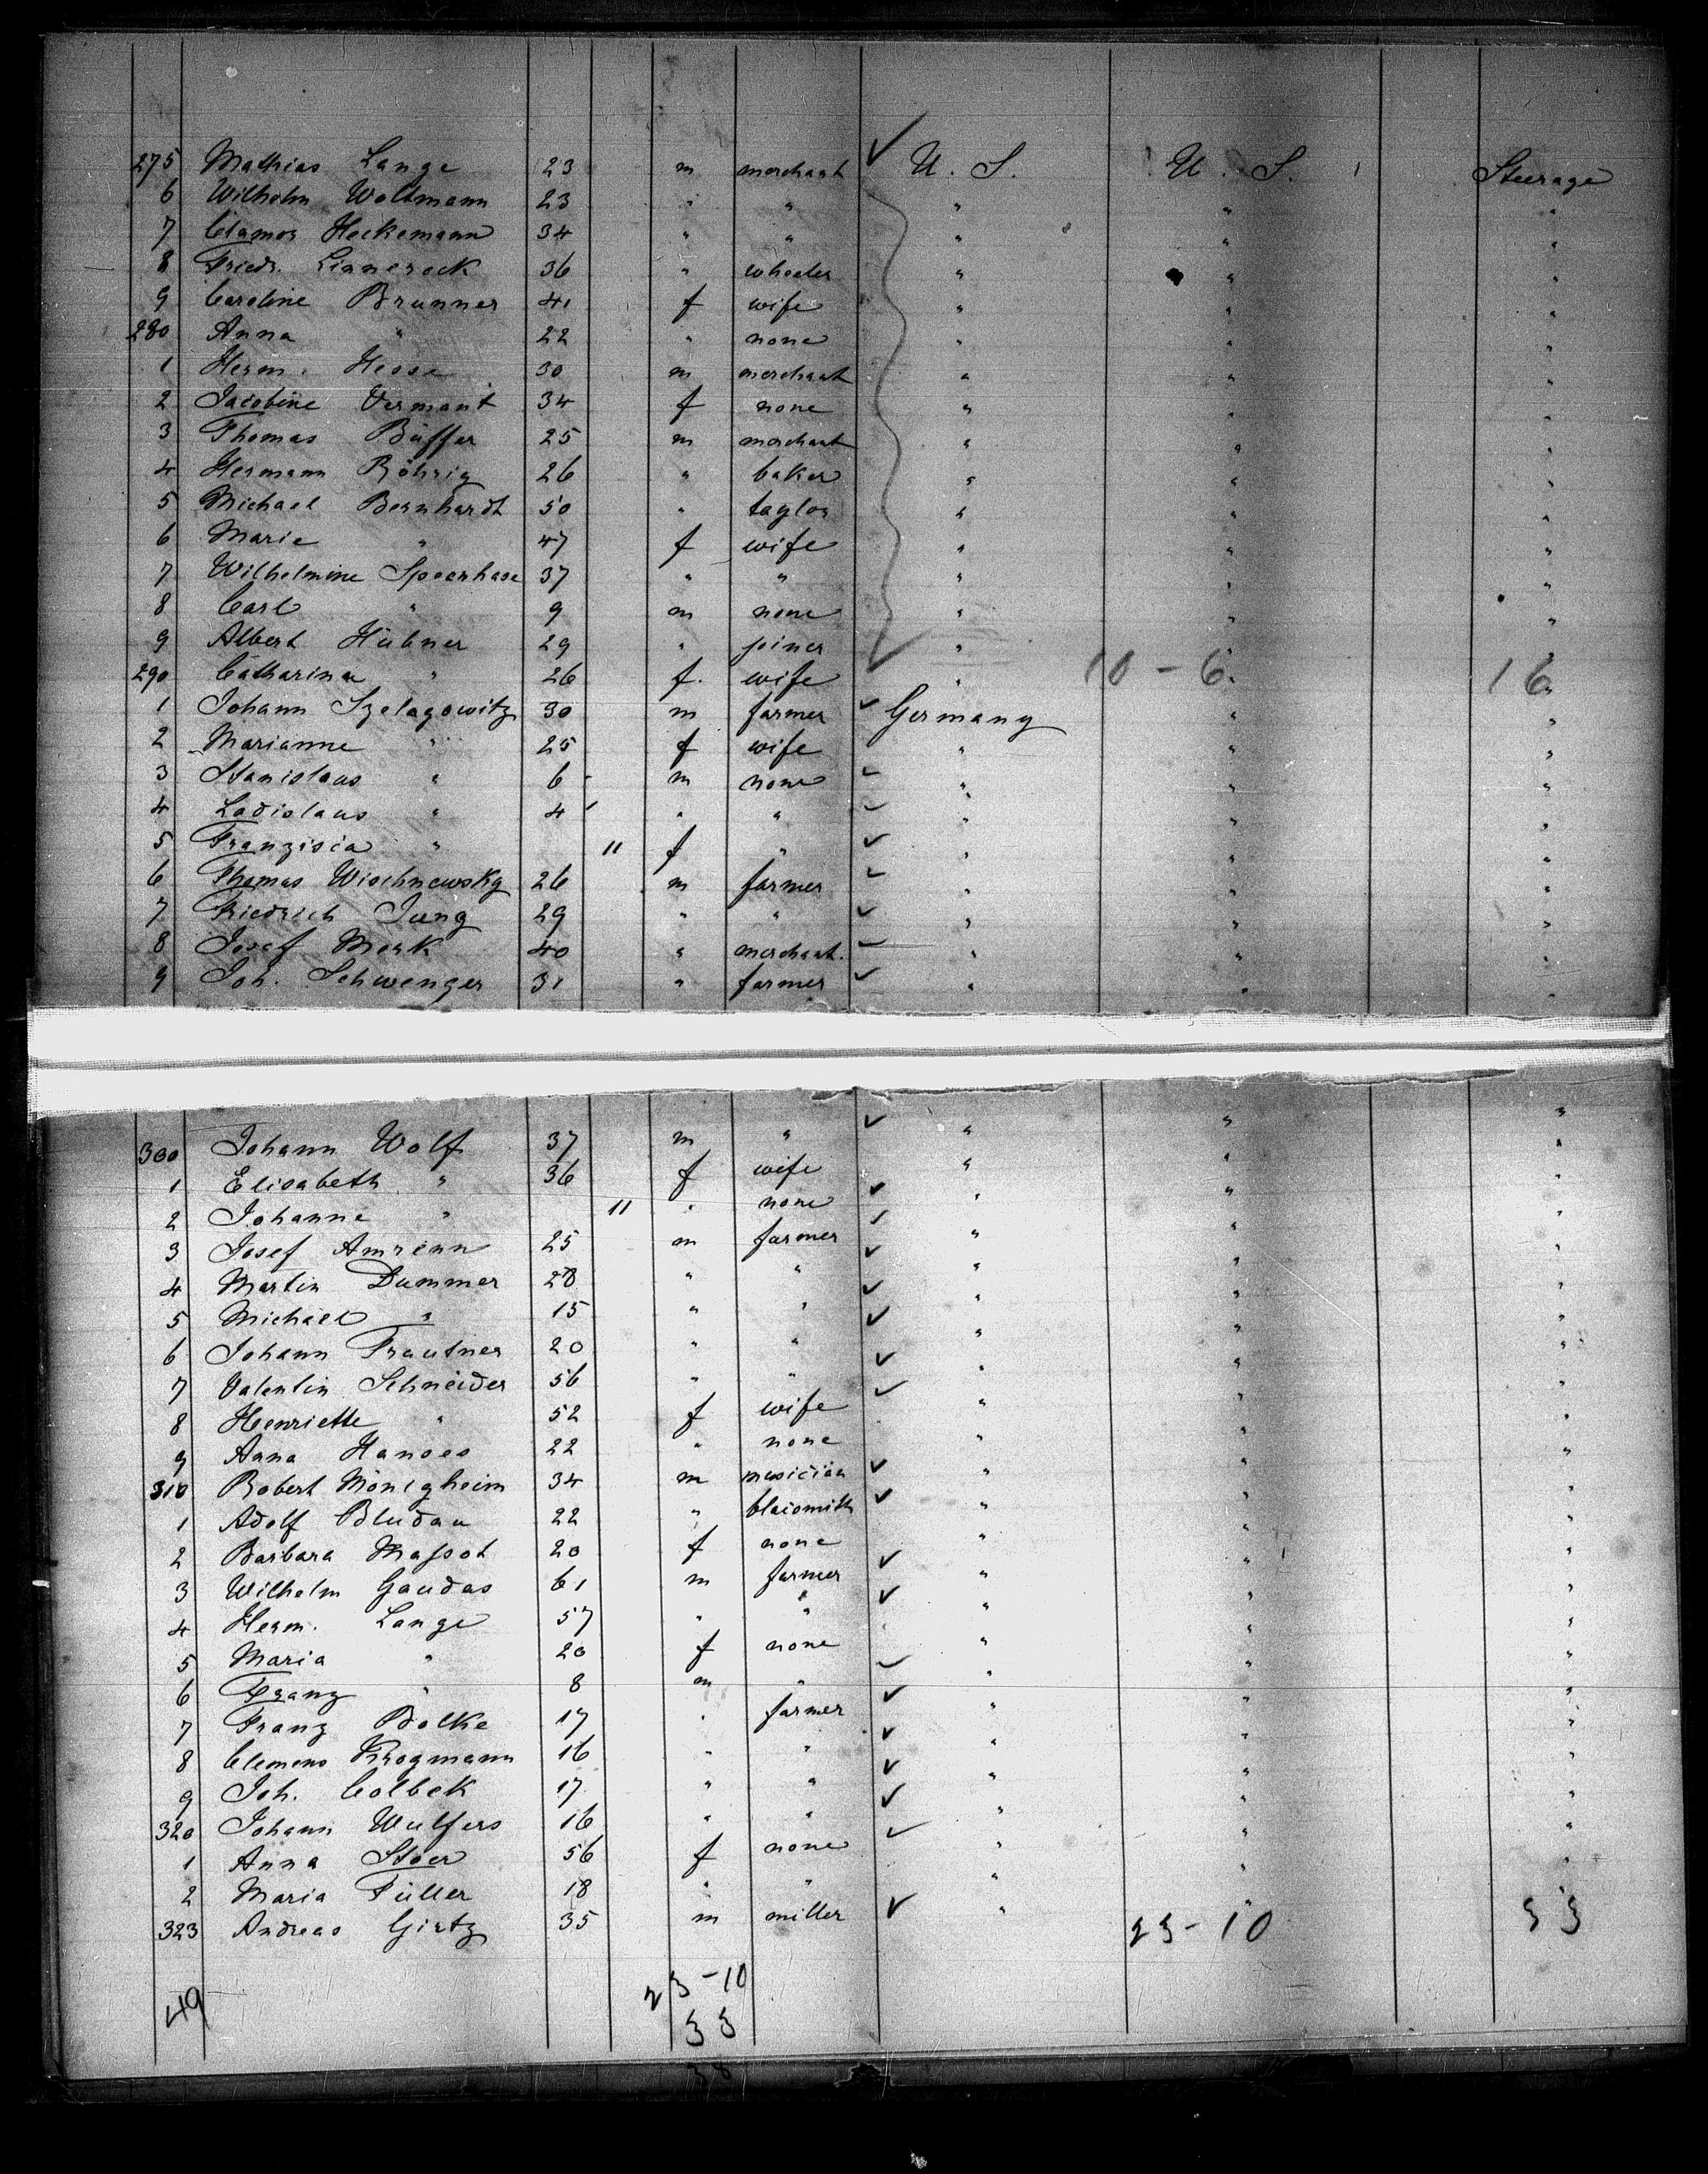 275 Mathias Lange 23 m merchant ✓ U. S. U. S. Steerage
6 Wilhelm Woltmann 23 " " " " "
7 Clamor Heckemann 34 " " " " "
8 Friedr. Linnerock 36 " wheeler " " "
9 Caroline Brunner 41 f wife " " "
280 Anna " 22 " none " " "
1 Herm. Hesse 30 m merchant " " "
2 Jacobine Vermant 34 f none " " "
3 Thomas Büffer 25 m merchant " " "
4 Hermann Röhrig 26 " baker " " "
5 Michael Bernhardt 50 " taylor " " "
6 Marie " 47 f wife " " "
7 Wilhelmine Speerhase 37 " " " " "
8 Carl " 9 m none " " "
9 Albert Hübner 29 " joiner ✓ " " "
290 Catharina " 26 f. wife " 10 - 6 " 16 "
1 Johann Szelagowitz 30 m farmer ✓ Germany " "
2 Marianne " 25 f wife " " "
3 Stanislaus " 6 m none ✓ " " "
4 Ladislaus " 4 " " ✓ " " "
5 Franzisca " 11 f " ✓ " " "
6 Thomas Wischnewsky 26 m farmer ✓ " " "
7 Friedrich Jung 29 " " ✓ " " "
8 Josef Merk 40 " merchant. ✓ " " "
9 Joh. Schwenger 31 " farmer ✓ " " "
300 Johann Wolf 37 m " ✓ " " "
1 Elisabeth " 36 f wife " " "
2 Johanne " 11 " none ✓ " " "
3 Josef Amrenn 25 m farmer ✓ " " "
4 Martin Dummer 28 " " ✓ " " "
5 Michael " 15 " " ✓ " " "
6 Johann Trautner 20 " " ✓ " " "
7 Valentin Schneider 56 " " ✓ " " "
8 Henriette " 52 f wife ✓ " " "
9 Anna Hanses 22 " none " " "
310 Robert Mönigheim 34 m musician ✓ " " "
1 Adolf Bludau 22 " blacsmith ✓ " " "
2 Barbara Massot 20 f none " " "
3 Wilhelm Gaudas 61 m farmer ✓ " " "
4 Herm. Lange 57 " " ✓ " " "
5 Maria " 20 f none " " "
6 Franz " 8 m " ✓ " " "
7 Franz Bölke 17 " farmer ✓ " " "
8 Clemens Krogmann 16 " " ✓ " " "
9 Joh. Colbek 17 " " ✓ " " "
320 Johann Wulfers 16 " " ✓ " " "
1 Anna Stoer 56 f none ✓ " " "
2 Maria Füller 18 " " " " "
323 Andreas Girtz 35 m miller ✓ " 23 - 10 33
49 23 - 10
33
38